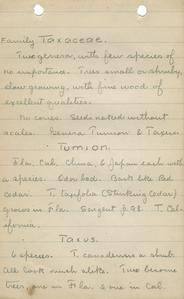 Family Taxaceae.
Two genera, with few species of
no importance. Trees small or shrubby,
slow growing, with fine wood of
excellent qualities.
No cones. Seeds naked without
scales. Genera Tumion & Taxus.
Tumion.
Fla. Cal. China, & Japan each with
a species. Odor bad. Bark like Red
Cedar. T. taxifolia (Stinking Cedar)
grows in Fla. Sargent p. 91. T. Cali-
fornia.
Taxus.
6 species. T. canadensis a shrub.
All look much alike. Two become
trees, one in Fla. & one in Cal.